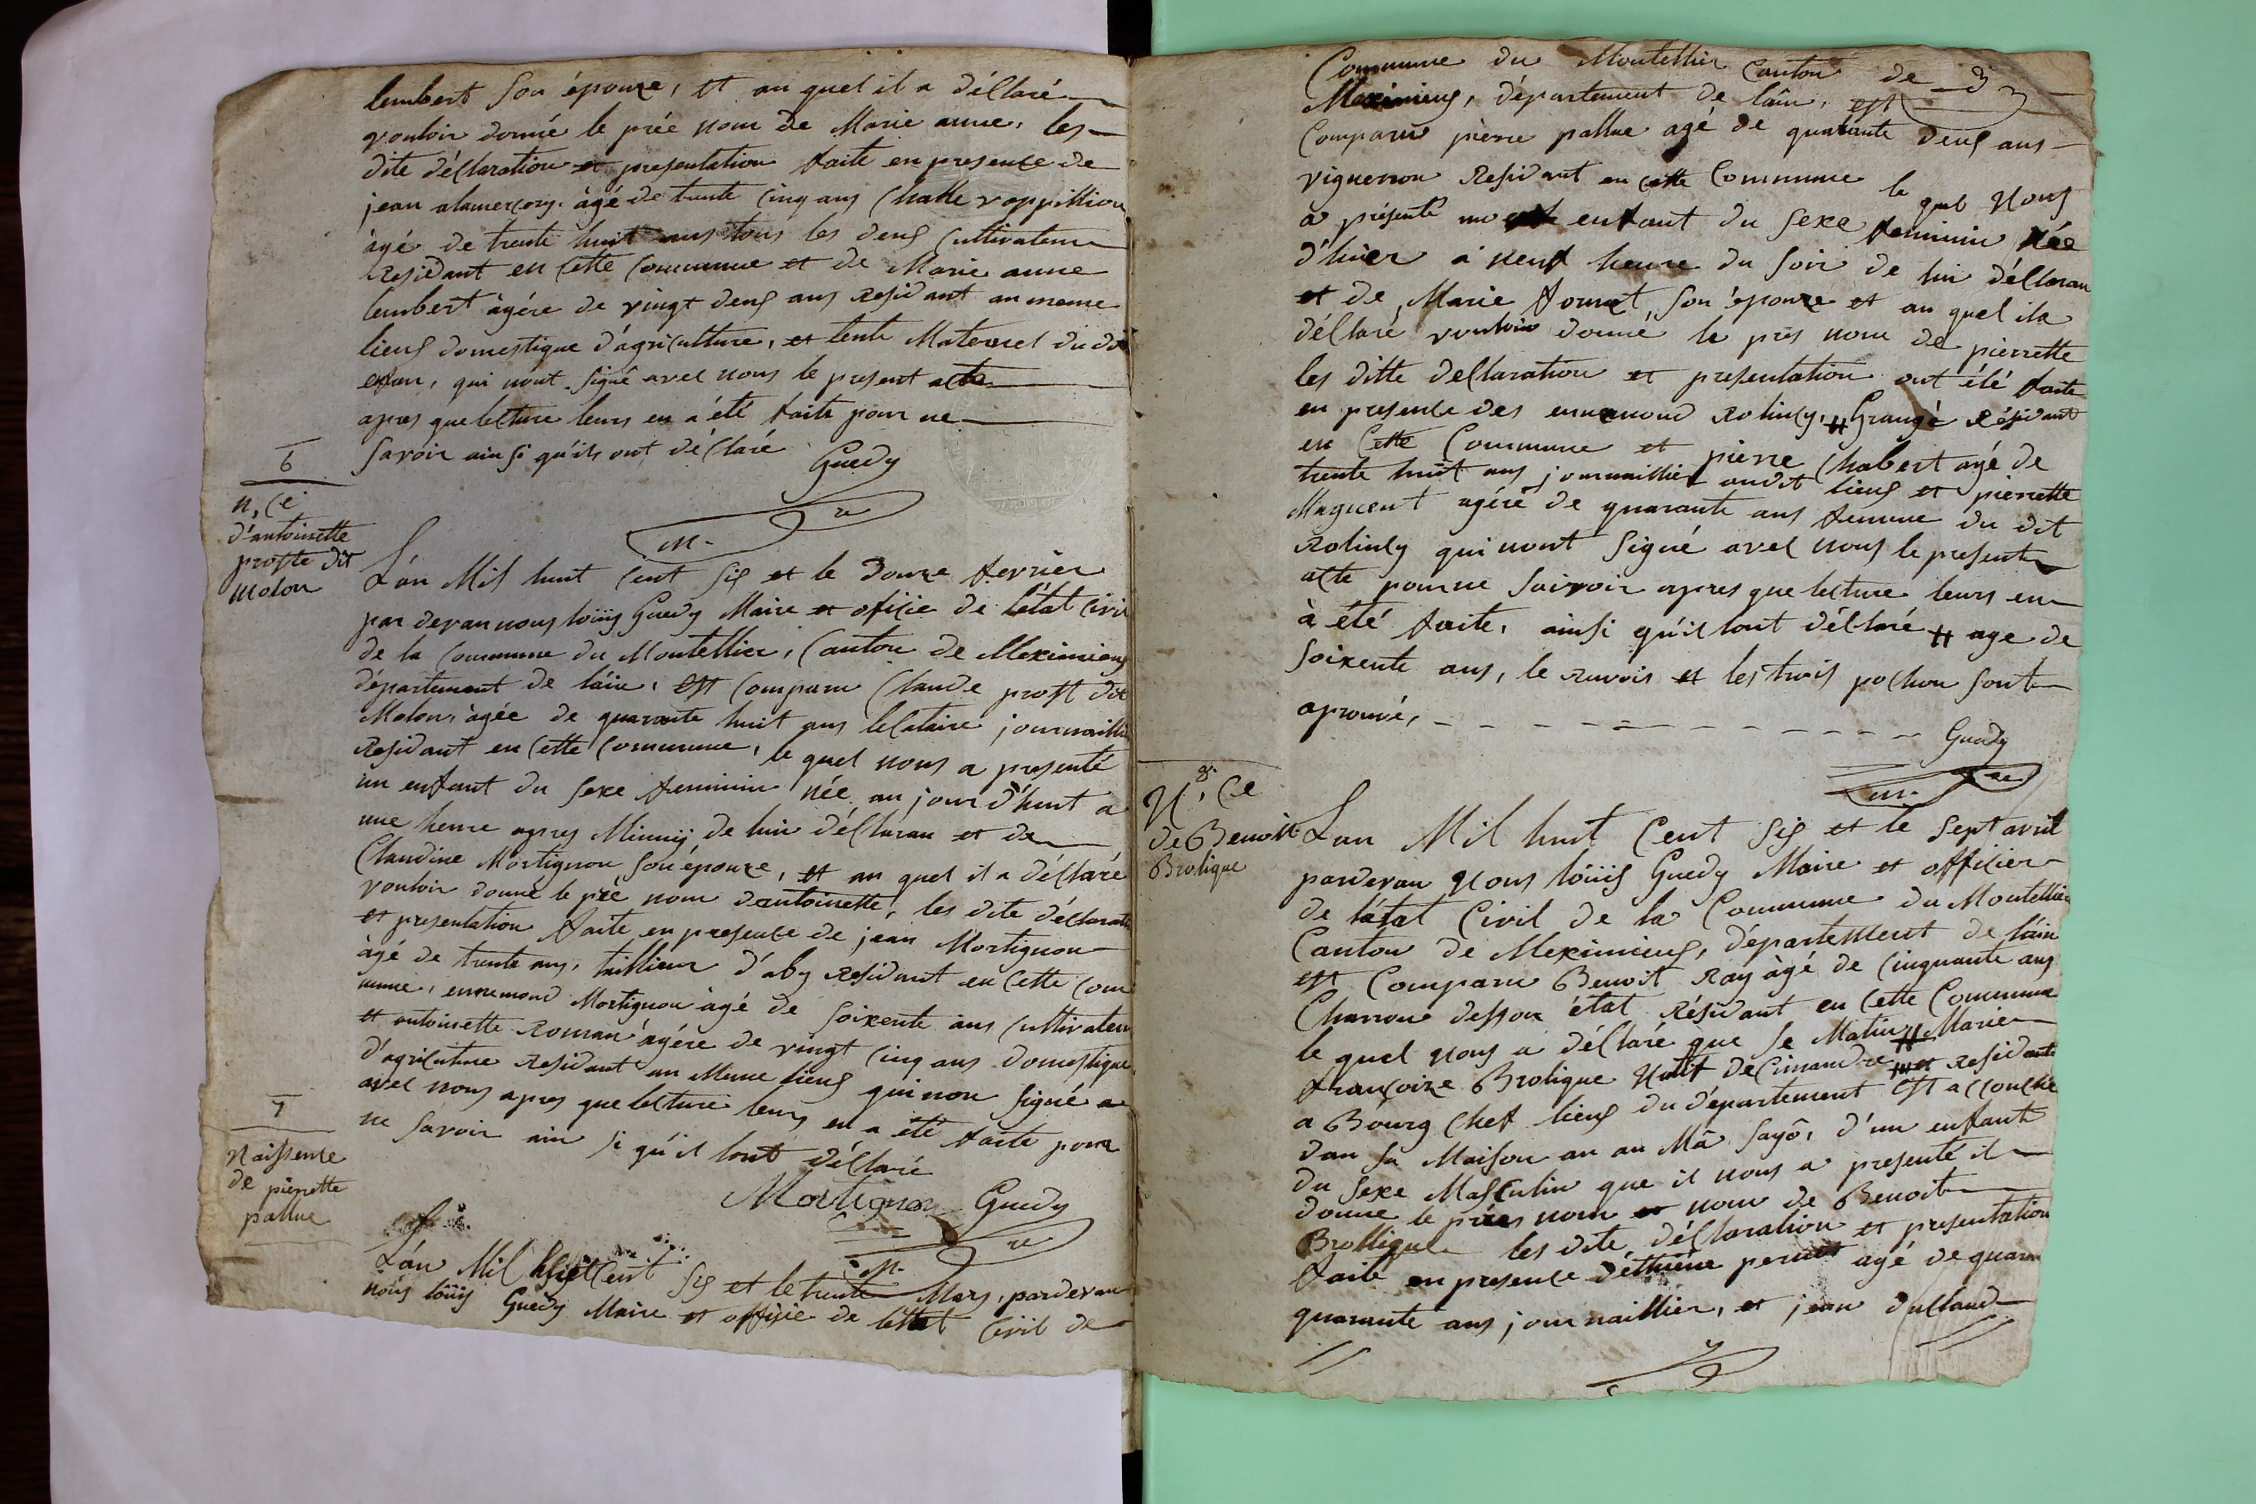 lembert son épouze, et au quel il a déllaré
vouloir donné le prée nom de Marie anne, les
dite déclaration et presentation faite en presence de
jean alamercery. àgé de trente cinq ans Charle vappillion
àgé de trente huit ans tous les deux Cultivateur
Residant en Cette Commune et de Marie anne
lembert àgére de vingt deux ans Residant au meme
lieux domestique d'agriculture, et tente Maternel du dit
enfan, qui nont signé avec nous le present acte
apres que lecture leurs en a été faite pour ne
savoir ain si qu'ils ont déclaré Guedy
m. re
6
n, ce
d'antoinette
proste dit
molon
L'án Mil huit Cent six et le douze fevrier
par devan nous loüis Guedy Maire et oficie de l'état Civil
de la Commune du Montellier, Canton de Meximieux
département de láin, est Comparu Claude prost dit
Molon, àgée de quarante huit ans locataire journaillier
Residant en Cette Commune, le quel nous a presenté
un enfant du sexe feminin née au jour d'huit a
une heure apres Minuy de lui décláran et de
Claudine Mortignon son épouze, et au quel il a déclaré
vouloir donné le pré nom dantoinette, les dite déclaration
et presentation faite en presence de jean Mortignon
àgé de trente ans, taillieur d'aby Residant en Cette Com
mune, ennemond Mortignon àgé de soixente ans Cultivateur
et antoinette Roman àgére de vingt Cinq ans domestique
d'agriculture Residant au Meme lieux qui non signé a
avec nous apres que lecture leurs en a été faite pour
ne savoir ain si qu'il sont déclaré
Mortignon Guedy
m. re
7
Naissence
de pierrette
pallue
L'án Mil huit Cent six et le trente Mars, pardevan
nous loüis Guedy Maire et officie de léttat Civil de
Commune du Montellier Canton de
Meximieux, département de láin, est
Comparu pierre pallue agé de quarante deux ans
vigneron Residant en Cette Commune le quel Nous
a présenté un enfant du sexe feminin Née
d'hier a neuf heure du soir de lui décláran
et de Marie fournet son épouze et au quel ila
déllaré vouloir donné le prés nom de pierrette
les ditte declaration et presentation ont été faite
en presence des ennemond Rolinly, # Grangé Résidant
en Cette Commune et pierre Chabert agé de
trente huit ans journaillier audit lieux et pierrette
Maguent agéré de quarante ans femme du dit
Rolinly qui nont signé avec nous le present
acte pour ne saivoir apres que lecture leurs en
à été faite, ainsi qu'il sont déclaré # age de
soixente ans, le Ravois et les trois pochon sont
aprouvé, - - - - - - - - - - - - Guedy
m. re
8.
N, Ce
de Benoit
Brolique
Lan Mil huit Cent six et le sept avril
pardevan Nous loüis Guedy Maire et officier
de létat Civil de la Commune du Montellier
Canton de Meximieux, département de láin
est Comparu Benoit Ray àgé de Cinquante ans
Charron desson état Résidant en Cette Commune
le quel nous a déclaré que se Matin # Marie
françoize Brolique Natif de Cimandre Residante
a Bourg Chef lieux du département est accouché
dan sa Maison an au Mâ sayô, d'un enfant
du sexe Masculin que il nous a presenté il
donne le prés nom et nom de Benoit
Brollique les dite déclaration et presentation
faite en presence déthiéne pernet agé de quara
quarante ans journaillier, et jean dulland